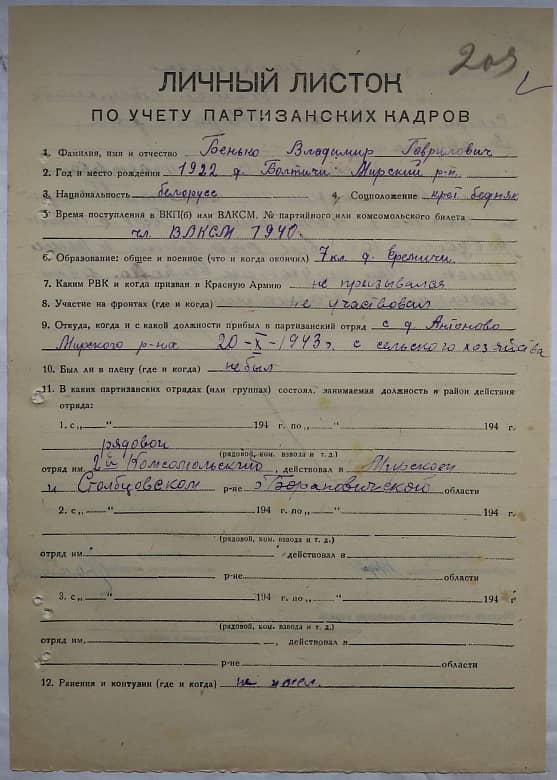 209
ЛИЧНЫЙ ЛИСТОК
ПО УЧЕТУ ПАРТИЗАНСКИХ КАДРОВ
1. Фамилия, имя и отчество Бенько Владимир Гаврилович
2. Год и место рождения 1922 д. Болтичи Мирский р-н
3. Национальность белорусс 4. Соцположение крест бедняк
5 Время поступления в ВКП(б) или ВЛКСМ, № партийного или комсомольского билета
чл. ВЛКСМ 1940.
6. Образование: общее и военное (что и когда окончил) 7 кл. д. Еремичи
7. Каким РВК и когда призван в Красную Армию не призывался
8. Участие на фронтах (где и когда) не участвовал
9. Откуда, когда и с какой должности прибыл в партизанский отряд с д. Антоново
Мирского р-на 20-X-1943г. с сельского хозяйства
10. Был ли в плену (где и когда) не был
11. В каких партизанских отрядах (или группах) состоял, занимаемая должность и район действия
отряда:
1. с „ — “ 194 г. по „ — “ 194 г.
рядовой
(рядовой, ком. взвода и т. д.)
отряд им. 2й Комсомольский, действовал в Мирском
и Столбцовском р-не Барановичской области
2. с „ — “ 194 г. по „ — “ 194 г.
(рядовой, ком. взвода и т. д.)
отряд им. действовал в
р-не области
3. с „ — “ 194 г. по „ — “ 194 г
(рядовой, ком. взвода и т. д.)
отряд им. , действовал в
р-не области
12. Ранения и контузии (где и когда) не имел.